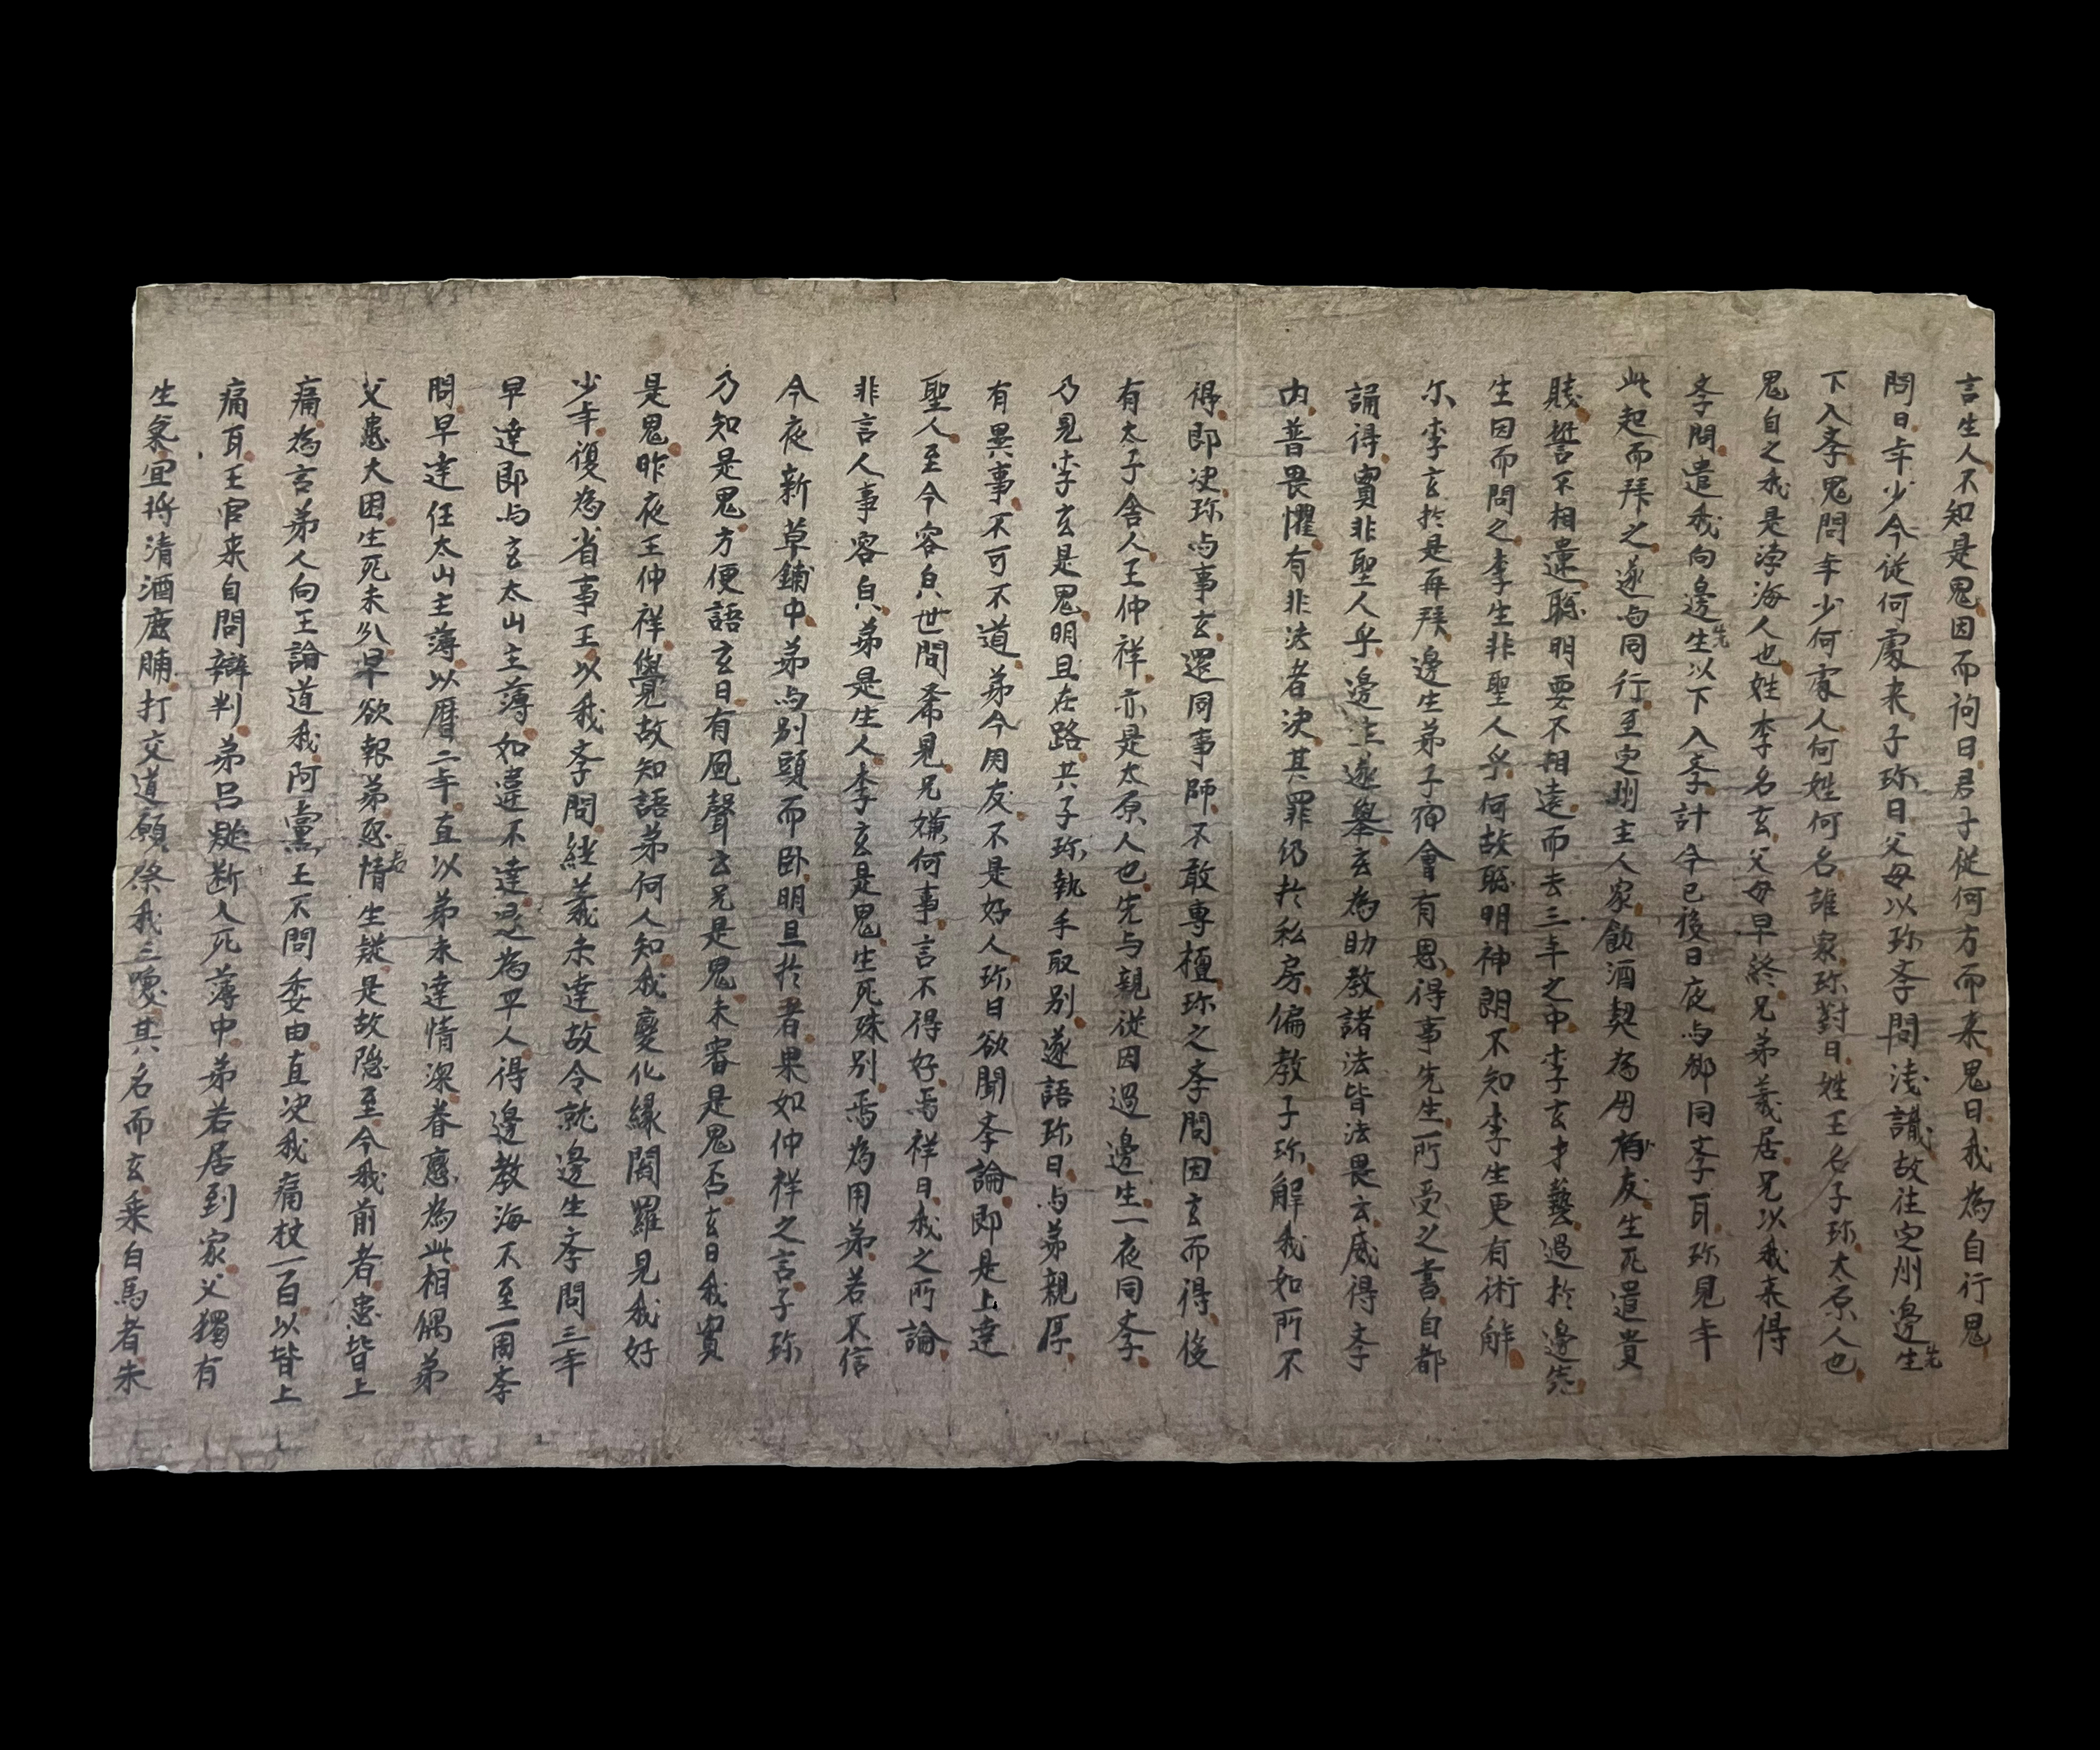 言生人不知是鬼因而問曰君子從何方而来鬼曰我為自行鬼
問曰年少今従何處来子珎曰父母以珎斈問淺識故往定州邊先生
下入斈鬼問年少何處人何姓何名誰家珎對曰姓王名子珎太原人也
鬼自之我是渤海人也姓李名玄父母早終兄弟義居兄以我未得
斈問遣我向邊先生以下入斈計今已後日夜与郷同斈耳珎見年
此起而拜之遂与同行至定州主人家飲酒契為朋友生死遣貴
賎誓不相遺聡明要不相遠而去三年之中李玄才藝過於邊先
生因而問之李生非聖人乎何故聡明神朗不知李生更有術觧
尓李玄於是再拜邊生弟子宿會有恩得事先生所受之書自都
誦得實非聖人乎邊生遂舉玄為助教諸法皆法畏玄威得斈
内普畏懼有非法者决其罪仍於私房偏教子珎觧我如所不
得即决珎与事玄還同事師不敢専擅珎之斈問因玄而得後
有太子舎人王仲祥亦是太原人也先与親従因過邊生一夜同斈
乃見李玄是鬼明旦在路共子珎執手取別遂語珎曰与弟親厚
有異事不可不道弟今用友不是好人珎曰欲聞斈論即是上達
聖人至今容㒵世間希見兄嫌何事言不得好焉祥曰我之所論
非言人事容㒵弟是生人李玄是鬼生死殊別焉為用弟若不信
今夜新草鋪中弟与別頭而卧明旦於看果如仲祥之言子珎
乃知是鬼方便語玄曰有風聲玄兄是鬼未審是鬼否玄曰我實
是鬼昨夜王仲祥覺故知語弟何人知我變化縁閻羅見我好
少年復為省事王以我斈問經義未達故令就邊生斈問三年
早達即与玄太山主薄如違不達退為平人得邊教海不至一周斈
問早達任太山主薄以曆二年直以弟未達情深眷戀為此相偶弟
父患大困生死未分早欲報弟恐情若生疑是故隐至今我前者患皆上
痛為言弟人向王論道我阿黨王不問委由直决我痛杖一百以皆上
痛耳王官来自問辯判弟吕疑断人死薄中弟若居到家父獨有
生氣宜将清酒鹿脯打交道願祭我三喚其名而玄乗白馬者朱